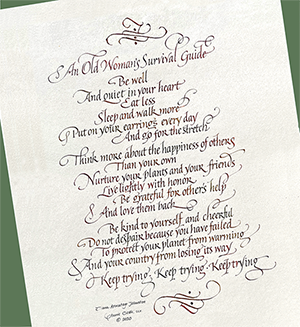 An Old Woman's Survival Guide
Be well
And quiet in your heart
Eat less
Sleep and walk more
Put on your earrings every day
And go for the stretch
Think more about the happiness of others
Than your own
Nurture your plants and your friends
Live lightly with honor
Be grateful for other's help
And love them back
Be kind to yourself and cheerful
Do not despair because you have failed
To protect your planet from warming
And your country from losing its way
Keep trying, Keep trying, Keep trying
© 2020